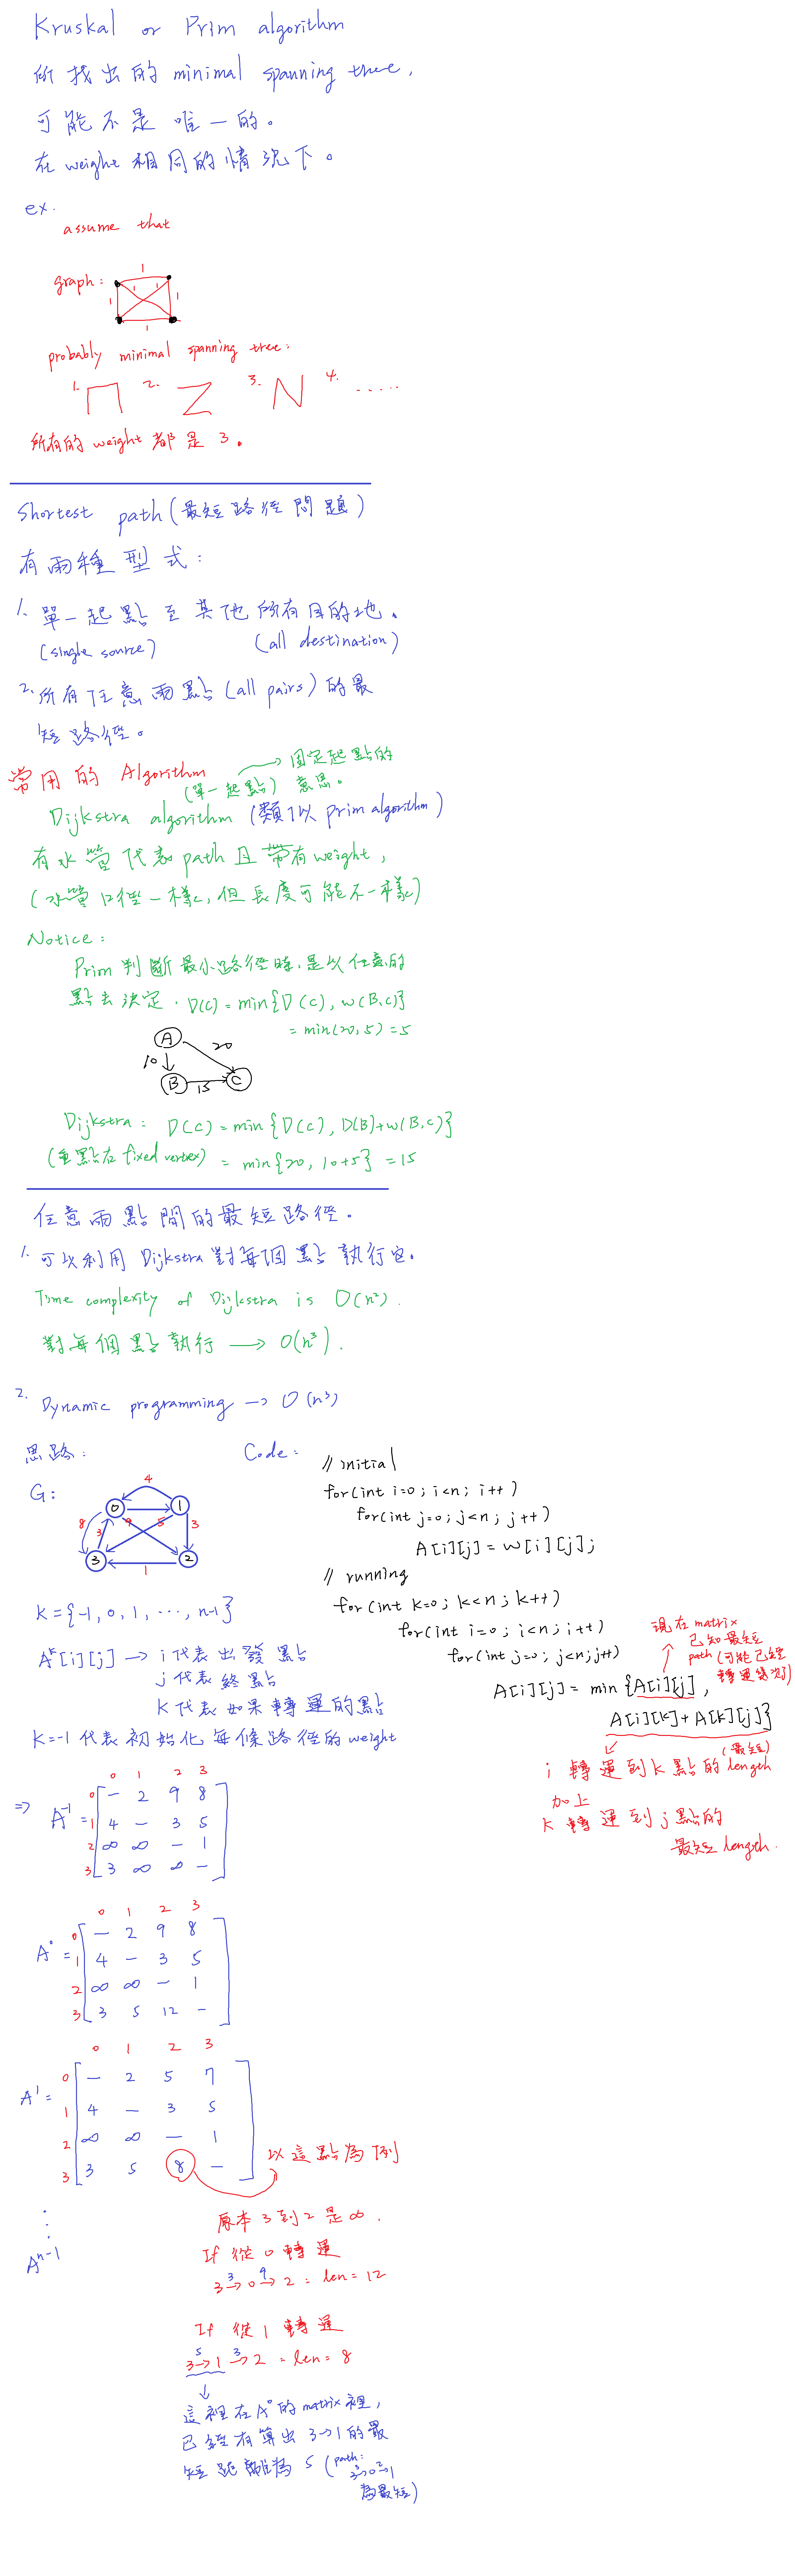 Kruskal or Prim algorithm
所找出的 minimal spanning tree,
可能不是唯一的。
在 weight 相同的情況下。
ex.
assume that
graph:
1
1 1 1 1
1
probably minimal spanning tree:
1. 2. 3. 4. .....
所有的 weight 都是 3。
Shortest path (最短路徑問題)
有兩種型式:
1. 單一起點至其他所有目的地。
(single source) (all destination)
2. 所有任意兩點 (all pairs) 的最
短路徑。
常用的 Algorithm
(單一起點) → 固定起點的
意思。
Dijkstra algorithm (類似 prim algorithm)
有水管代表 path 且帶有 weight,
(水管口徑一樣, 但長度可能不一樣)
Notice:
Prim 判斷最小路徑時, 是以任意的
點去決定. D(C) = min{D(C), w(B,C)}
= min(20, 5) = 5
A
20
10
B 15 C
Dijkstra: D(C) = min{D(C), D(B)+w(B,C)}
(重點在 fixed vertex) = min{20, 10+5} = 15
任意兩點間的最短路徑。
1. 可以利用 Dijkstra 對每個點執行它。
Time complexity of Dijkstra is O(n²).
對每個點執行 → O(n³).
2. Dynamic programming → O(n³)
思路:
G:
4
0 1
8 3 9 5 3
3 2
1
K = {-1, 0, 1, ..., n-1}
Aᵏ[i][j] → i 代表出發點
j 代表終點
K 代表如果轉運的點
K=-1 代表初始化每條路徑的 weight
Code:
// initial
for(int i=0; i<n; i++)
for(int j=0; j<n; j++)
A[i][j] = w[i][j];
// running
for(int k=0; k<n; k++)
for(int i=0; i<n; i++)
for(int j=0; j<n; j++)
A[i][j] = min {A[i][j],
A[i][k] + A[k][j]}
現在 matrix
已知最短
path (可能已經
轉運幾次了)
i 轉運到 k 點的 (最短) length
加上
k 轉運到 j 點的
最短 length.
0 1 2 3
⇒ A⁻¹ =
0 - 2 9 8
1 4 - 3 5
2 ∞ ∞ - 1
3 3 ∞ ∞ -
0 1 2 3
A⁰ =
0 - 2 9 8
1 4 - 3 5
2 ∞ ∞ - 1
3 3 5 12 -
0 1 2 3
A¹ =
0 - 2 5 7
1 4 - 3 5
2 ∞ ∞ - 1
3 3 5 8 -
以這點為例
⋮
Aⁿ⁻¹
原本 3 到 2 是 ∞.
If 從 0 轉運
3 9
3→0→2 = len = 12
If 從 1 轉運
5 3
3→1→2 = len = 8
這裡在 A⁰ 的 matrix 裡,
已經有算出 3→1 的最
短距離為 5 (path:
3 2
3→0→1
為最短)